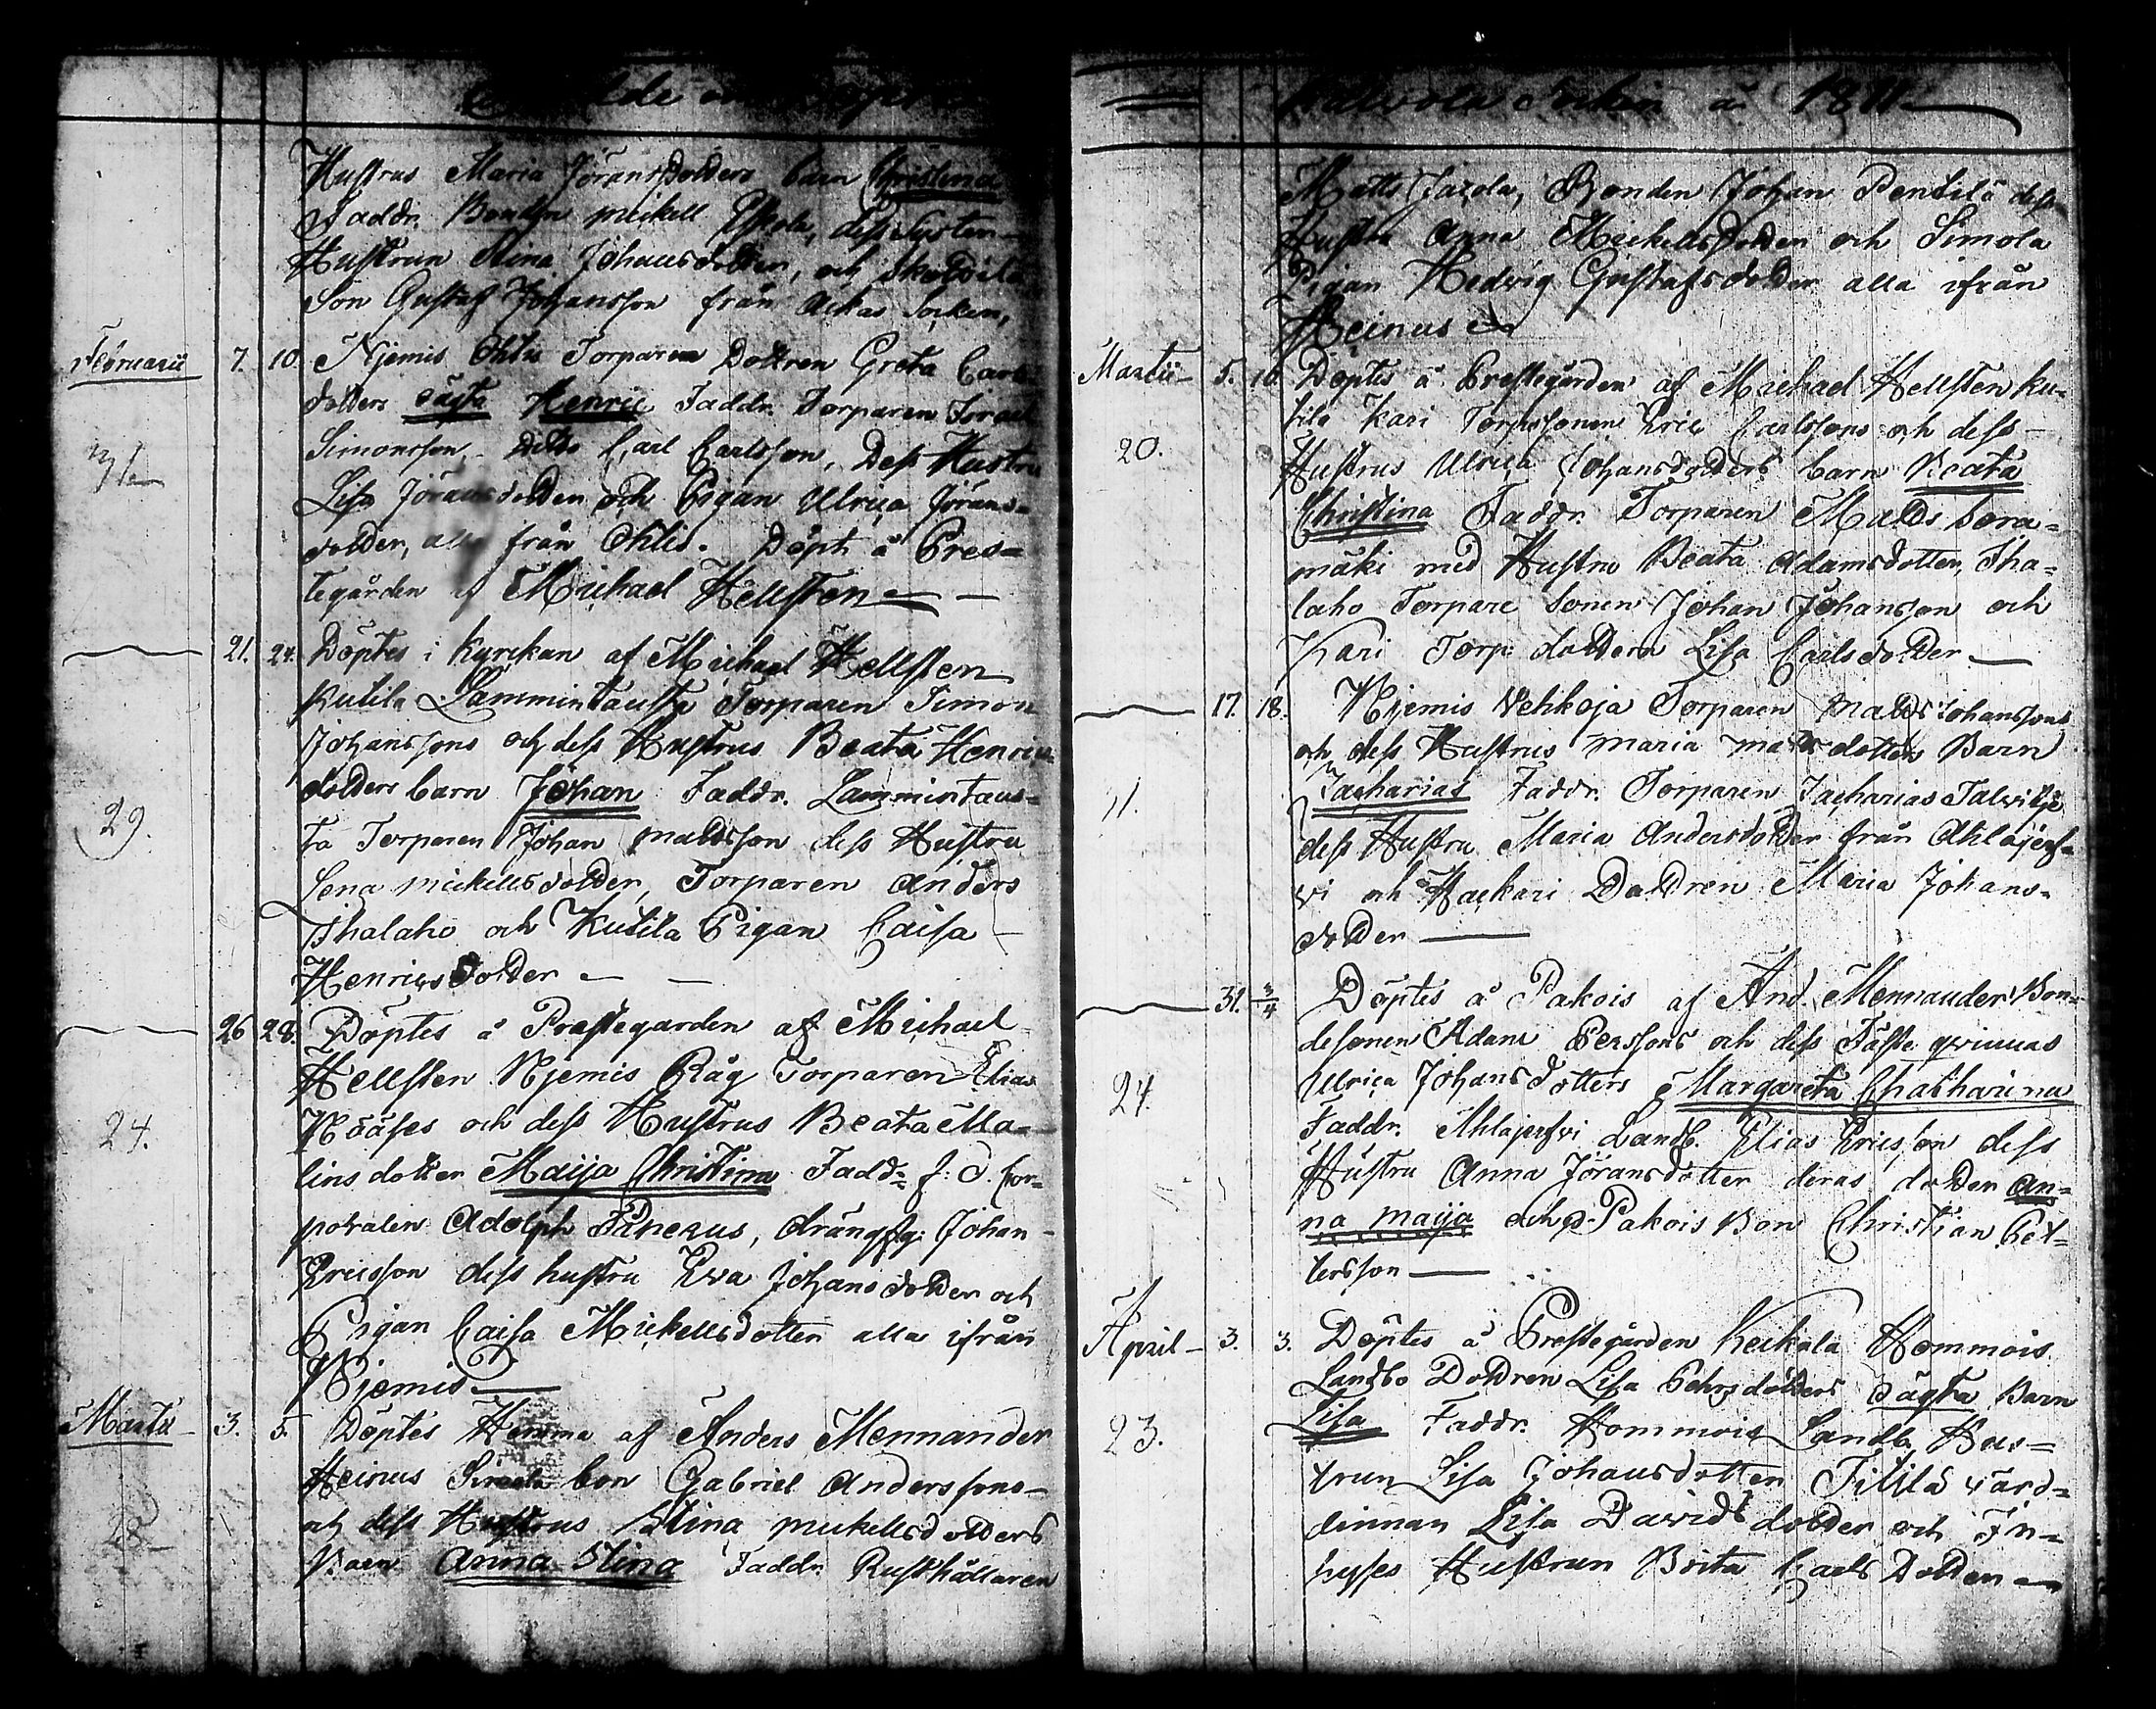 Kalvola Socken år 1811
Hustrus Maria Jöransdotters barn Christina
Faddr. Bonden Mickell dess Systen-
Hustrun Stina Johansdotter, och
Son Gustaf Johansson från Ackas Socken,
Februarii 7. 10. Njemis Ohlis Torparen Dottren Greta Carls-
dotters oägta Henric Faddr. Torparen Israel
Simonsson - ditto Carl Carlsson, Dess Hustru
31
Lisa Jöransdotter och Pigan Ulrica Jörans-
dotter, alla från Ohlis. Döpt å Pres-
tegården af Michael Hellsten
21. 24. Döptes i Kyrckan af Michael Hellsten
Kutila Lammintausta Torparen Simon
Johanssons och dess Hustrus Beata Henrics-
dotters barn Johan Faddr. Lammintaus-
29.
ta Torparen Johan Mattsson dess Hustru
Lena Mickellsdotter, Torparen Anders
Thalaho och Kutila Pigan Caisa
Henricsdotter
26 28. Döptes å Prestegården af Michael
Hellsten Njemis Råg Torparen Elias
och dess Hustrus Beata Ma-
24.
linsdotter Maija Christina Faddr f: d. Cor-
poralen Adolph, drängen Johan
Ericsson dess hustru Eva Johansdotter och
Pigan Caisa Mickellsdotter alla ifrån
Njemis
Martii 3. 5. Döptes Hemma af Anders Mennander
Heinus bon Gabriel Anderssons
och dess Hustrus Stina Mickellsdotters
28
Barn Anna Stina Faddr. Rusthållaren
Matts Jazola, Bonden Johan Pentilä dess
Hustru Anna Mickellsdotter och Simola
Pigan Hedvig Gustafsdotter alla ifrån
Heinus
Martii 5. 10. Döptes å Prestegården af Michael Hellsten Ku-
tila Kari Torparsonen Eric Carlssons och dess
20.
Hustrus Ulrica Johansdotters barn Beata
Christina Faddr. Torparen Matts Sora-
mäki med Hustru Beata Adamsdotter, Tha-
laho Torpare Sonen Johan Johansson och
Kari Torp: dottern Lisa Carlsdotter
17. 18. Njemis Vehkoja Torparen Matts Johanssons
och dess Hustrus Maria Mattsdotters Barn
11.
Zacharias Faddr. Torparen Zacharias
dess Hustru Maria Andersdotter från Ahlajerf-
vi och Hackari Dottren Maria Johans-
dotter
31. 3/4 Döptes å Pakois af And. Mennander Bon-
desonen Adam Perssons och dess Fäste qvinnas
24.
Ulrica Johansdotters Margareta Chatharina
Faddr. Ahlajerfvi Landb. Elias Ericsson dess
Hustru Anna Jöransdotter deras dotter An-
na Maija och Pakois Bon: Christian Pet-
tersson
April 3. 3. Döptes å Prestegården Keikala Hommois
Landbo Dottren Lisa Pehrsdotters oägta Barn
23.
Lisa Faddr. Hommois Landb. Hus-
trun Lisa Johansdotter Titilä värd-
innan Lisa Davidsdotter och In-
hyses Hustrun Brita Carls Dotter